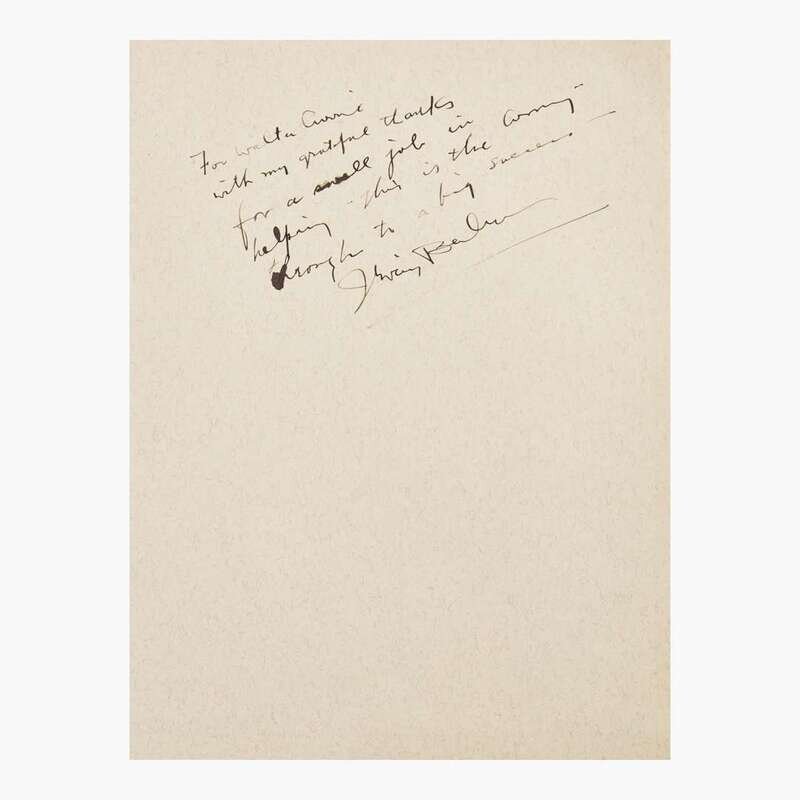 For Walter Currie
with my grateful thanks
for a swell job in
helping - this is the Army -
through to a big success -
Irving Berlin